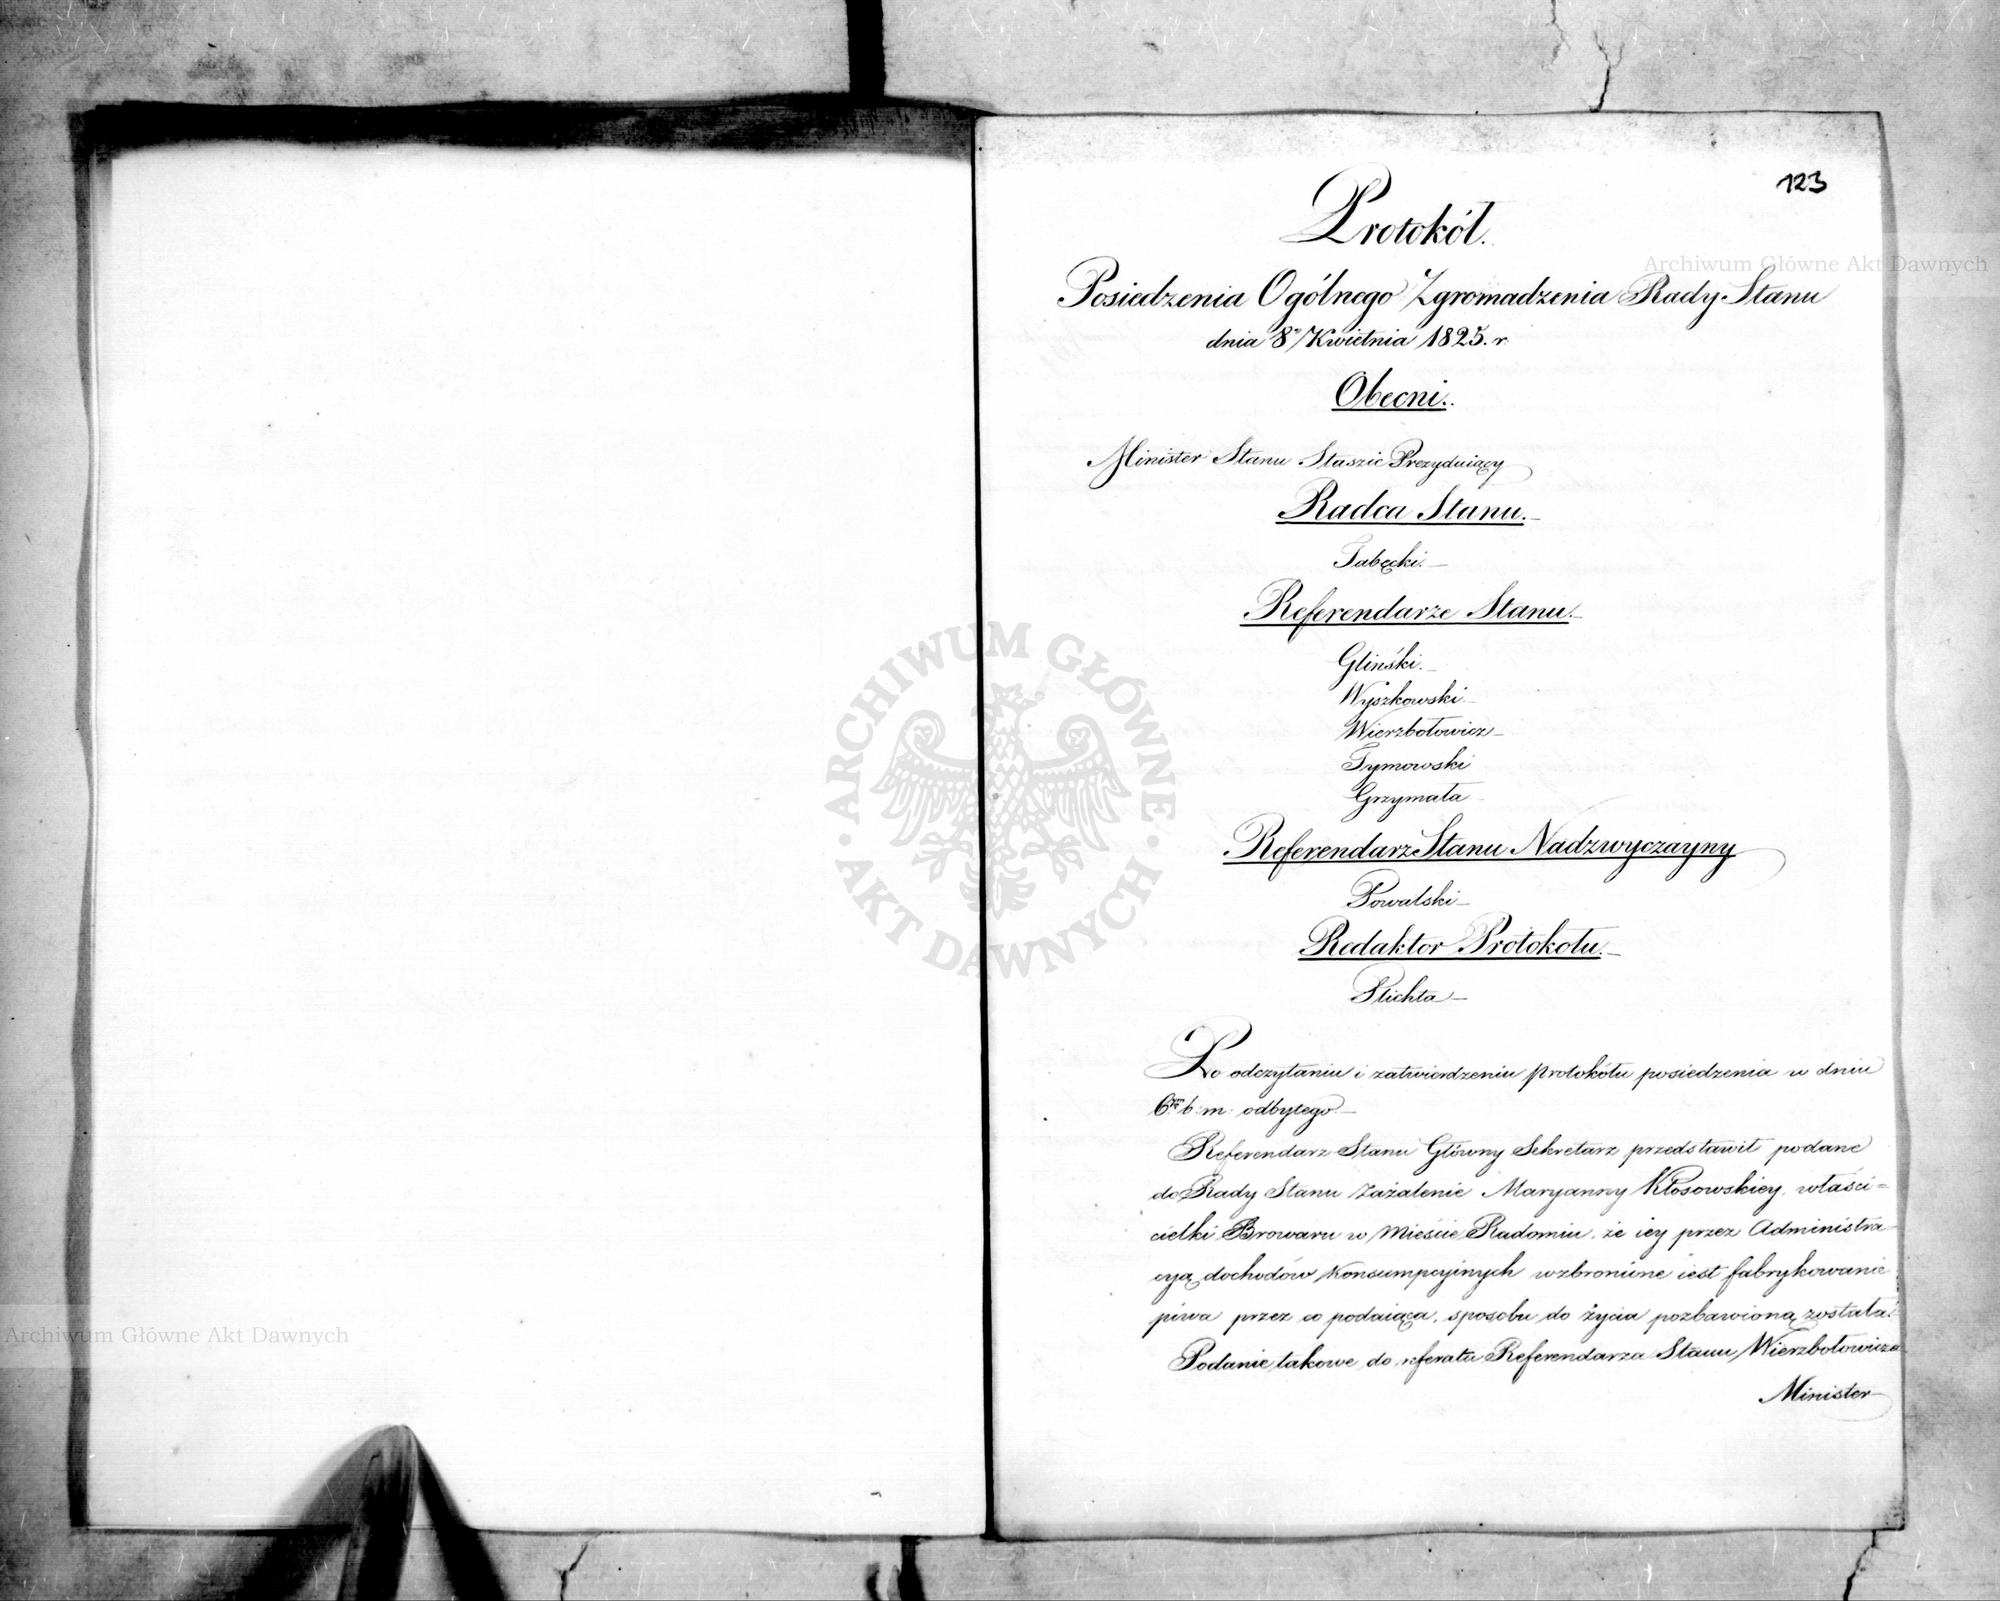 123
Protokół.
Posiedzenia Ogólnego Zgromadzenia Rady Stanu
dnia 8º Kwietnia 1825. r.
Obecni.
Minister Stanu Staszic Prezyduiący
Radca Stanu.
Tabęcki.
Referendarze Stanu.
Gliński.
Wyszkowski
Wierzbołowicz
Tymowski
Grzymała
Referendarz Stanu Nadzwyczayny
Powalski
Redaktor Protokołu.
Plichta
Po odczytaniu i zatwierdzeniu protokółu posiedzenia w dniu
6m b. m. odbytego.
Referendarz Stanu Główny Sekretarz przedstawił podane
do Rady Stanu Zażalenie Maryanny Kłosowskiey, właści=
cielki Browaru w Mieście Radomiu, że iey przez Administra-
cyą dochodów Konsumpcyinych wzbronione iest fabrykowanie
piwa przez co podaiąca, sposobu do życia pozbawioną została.
Podanie takowe do referatu Referendarza Stanu Wierzbołowicza
Minister
Archiwum Główne Akt Dawnych
Archiwum Główne Akt Dawnych
ARCHIWUM GŁÓWNE · AKT DAWNYCH ·